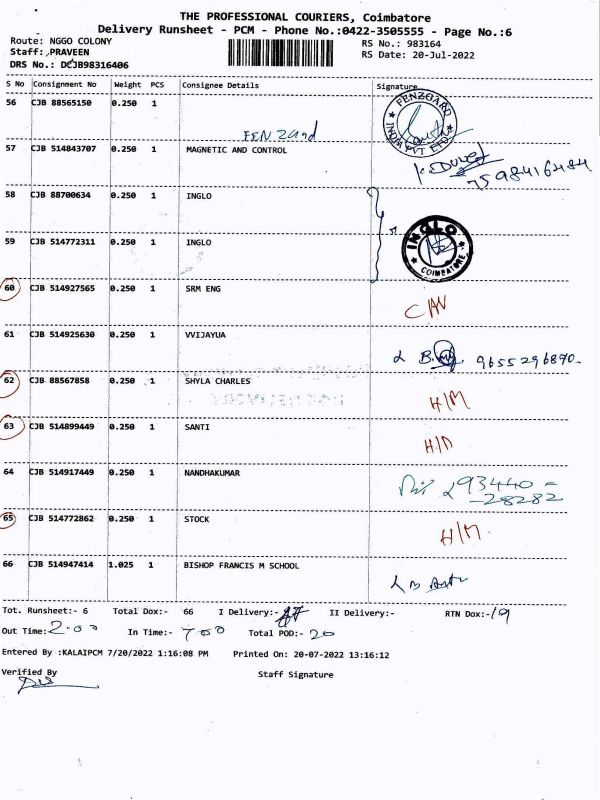 THE PROFESSIONAL COURIERS, Coimbatore
Delivery Runsheet - PCM - Phone No.:0422-3505555 - Page No.:6
Route: NGGO COLONY
RS No.: 983164
Staff: PRAVEEN
RS Date: 20-Jul-2022
DRS No.: DCJB98316406
S No Consignment No Weight PCS Consignee Details Signature
56 CJB 88565150 0.250 1
FENZGARD INDIA PVT LTD
57 CJB 514843707 0.250 1 MAGNETIC AND CONTROL
7598416484
58 CJB 88700634 0.250 1 INGLO
59 CJB 514772311 0.250 1 INGLO
INGLO COIMBATORE
60 CJB 514927565 0.250 1 SRM ENG
61 CJB 514925630 0.250 1 VVIJAYUA
9655296890-
62 CJB 88567858 0.250 1 SHYLA CHARLES
H/M
63 CJB 514899449 0.250 1 SANTI
64 CJB 514917449 0.250 1 NANDHAKUMAR
93440-
-28282
65 CJB 514772862 0.250 1 STOCK
H/M
66 CJB 514947414 1.025 1 BISHOP FRANCIS M SCHOOL
Tot. Runsheet:- 6 Total Dox:- 66 I Delivery:- II Delivery:- RTN Dox:-19
Out Time: 2.00 In Time:- 7.00 Total POD:- 20
Entered By :KALAIPCM 7/20/2022 1:16:08 PM Printed On: 20-07-2022 13:16:12
Verified By
Staff Signature